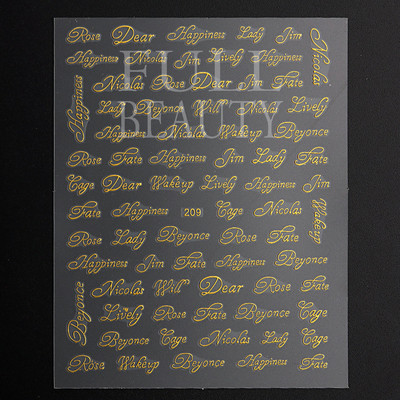 Rose Dear Happiness Lady Jim Nicolas
Happiness Nicolas Jim Lively Happiness
FULL
Happiness Nicolas Rose Dear Jim Fate
Lady Beyonce Will Nicolas Lively
BEAUTY
Happiness Nicolas Wakeup Beyonce
Rose Fate Happiness Jim Lady Fate
Cage Dear Wakeup Lively Happiness Jim
Fate Happiness 209 Cage Nicolas Wakeup
Rose Lady Beyonce Rose Fate
Happiness Jim Fate Happiness Beyonce
Beyonce Nicolas Will Dear Rose Fate
Lively Rose Fate Lively Cage
Beyonce Cage Nicolas Lady Cage
Rose Wakeup Beyonce Happiness Fate